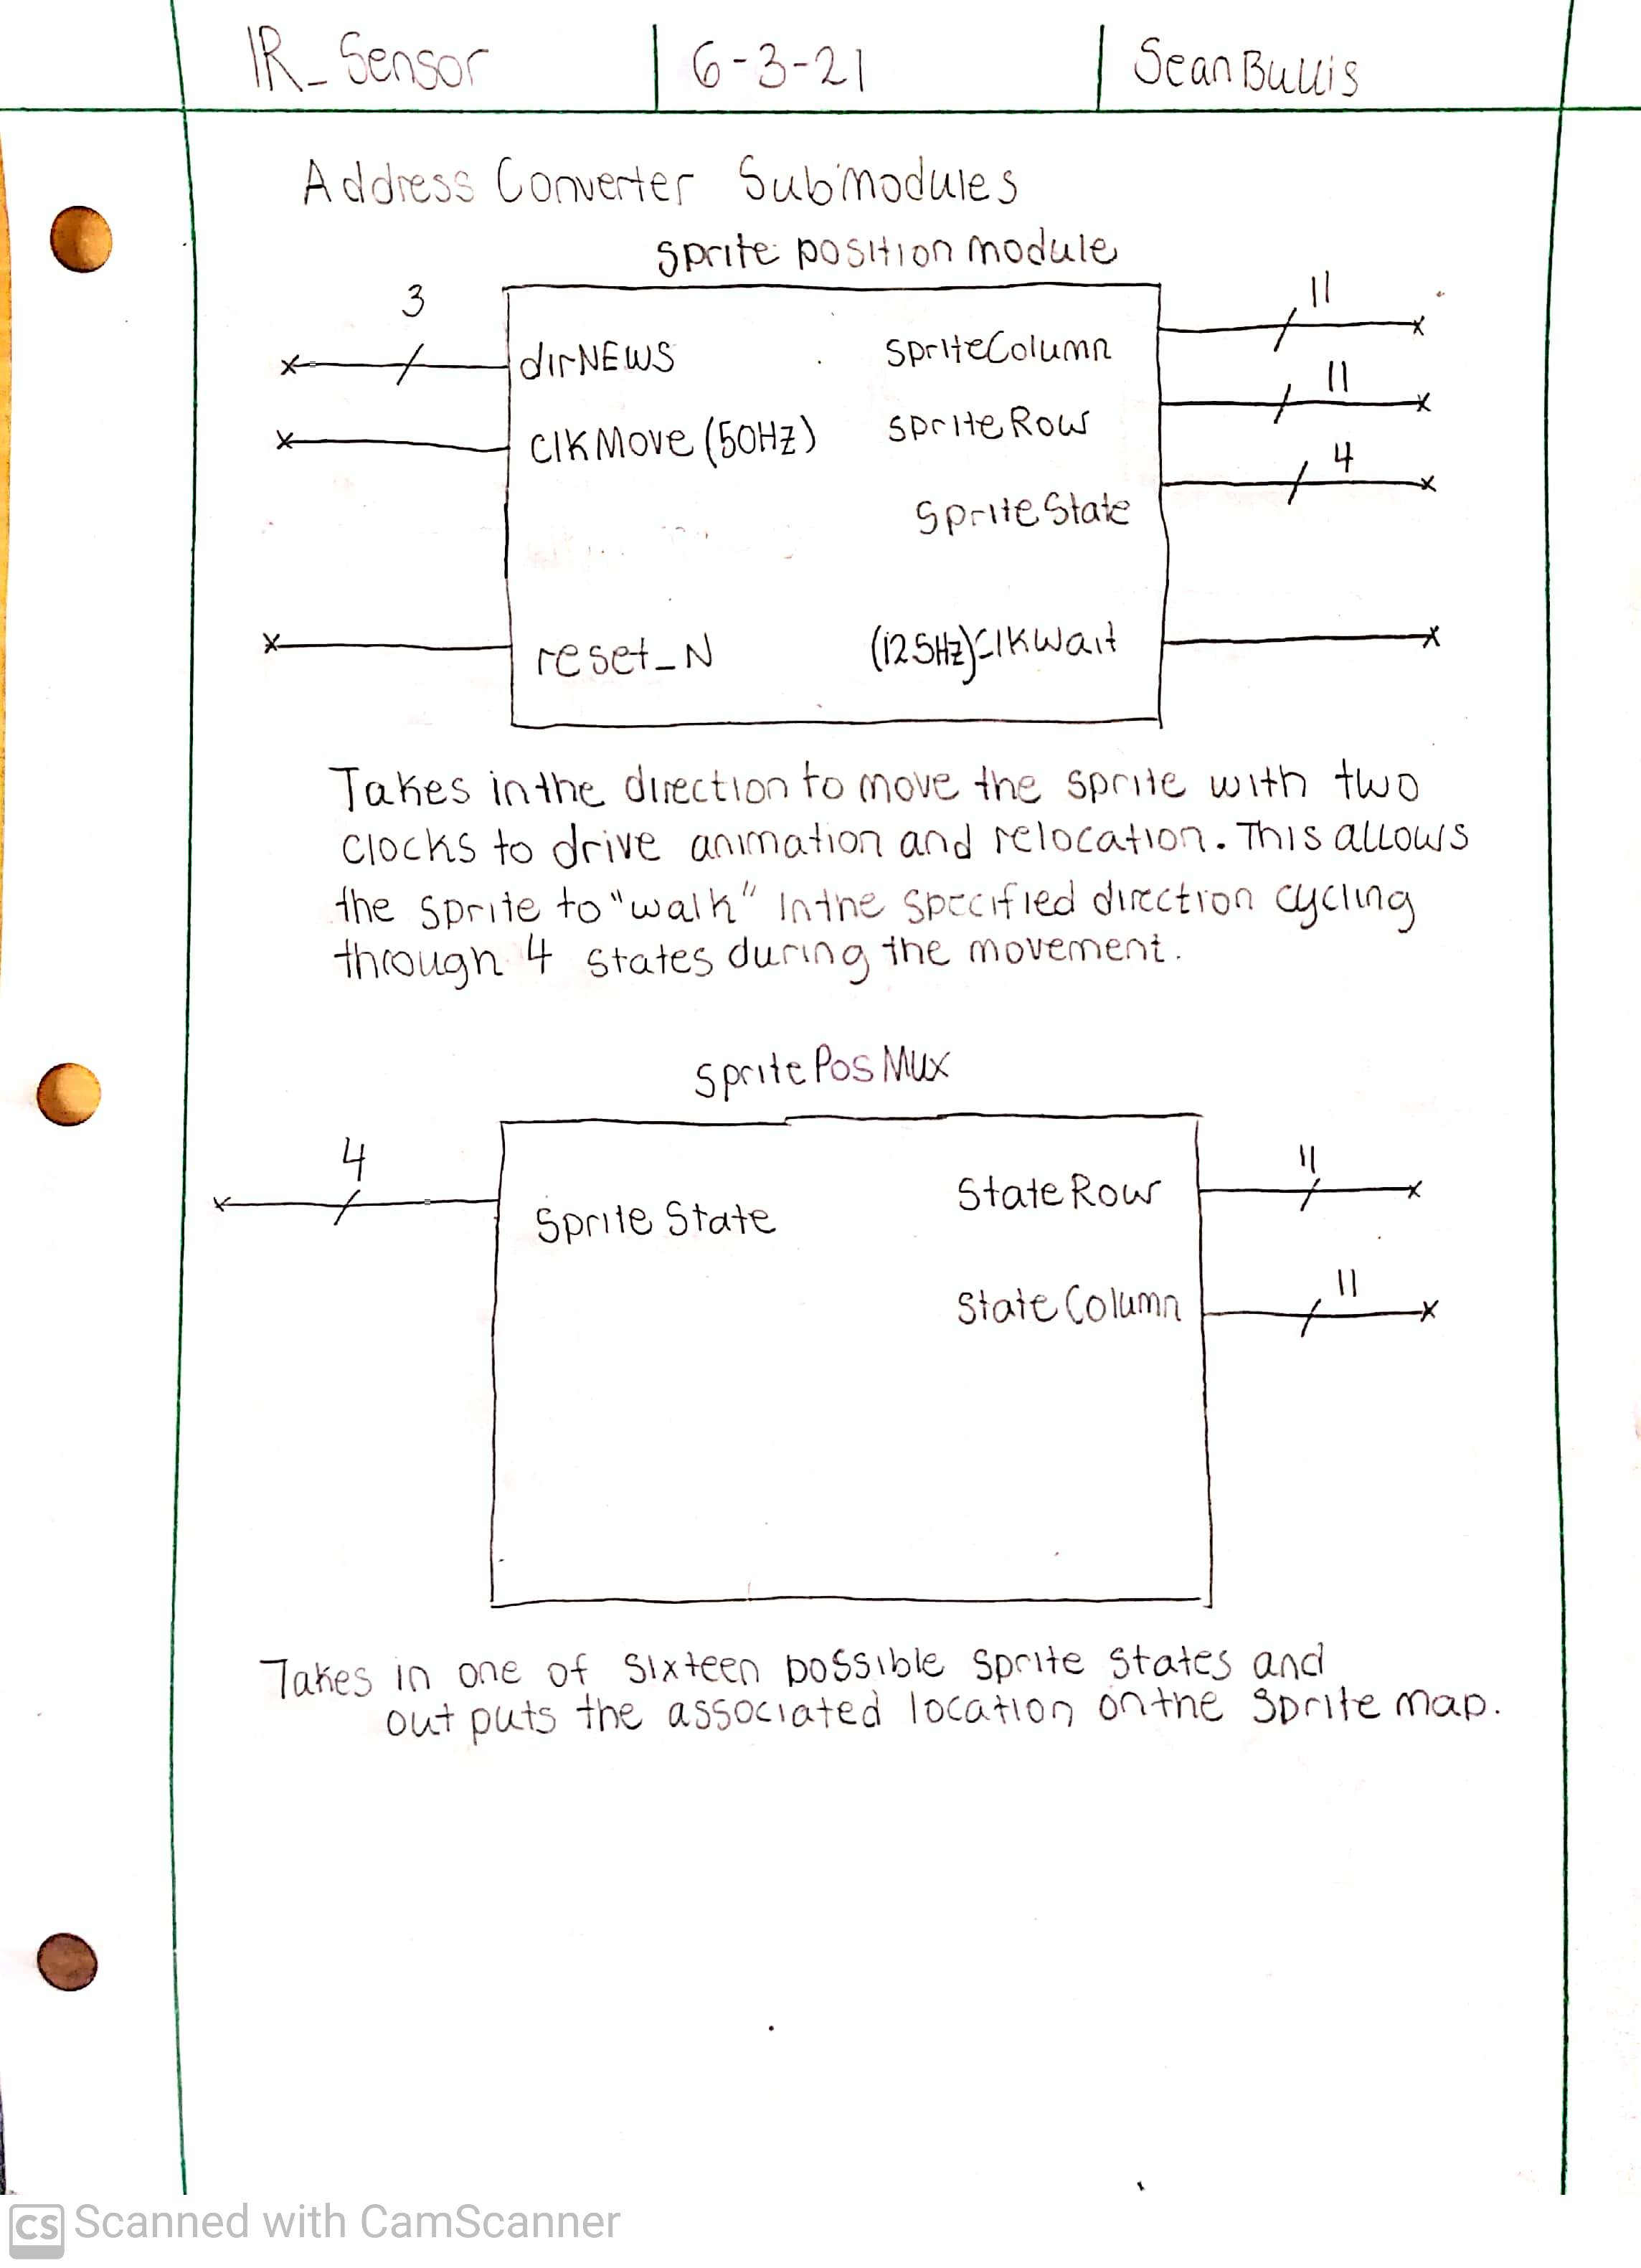 IR_Sensor 6-3-21 Sean Bullis
Address Converter Submodules
sprite position module
3 11
dirNEWS spriteColumn
11
clkMove (50Hz) spriteRow
4
SpriteState
reset_N (12.5Hz) clkWait
Takes in the direction to move the sprite with two
clocks to drive animation and relocation. This allows
the sprite to "walk" in the specified direction cycling
through 4 states during the movement.
Sprite Pos Mux
4 11
Sprite State State Row
11
State Column
Takes in one of sixteen possible sprite states and
outputs the associated location on the sprite map.
CS Scanned with CamScanner